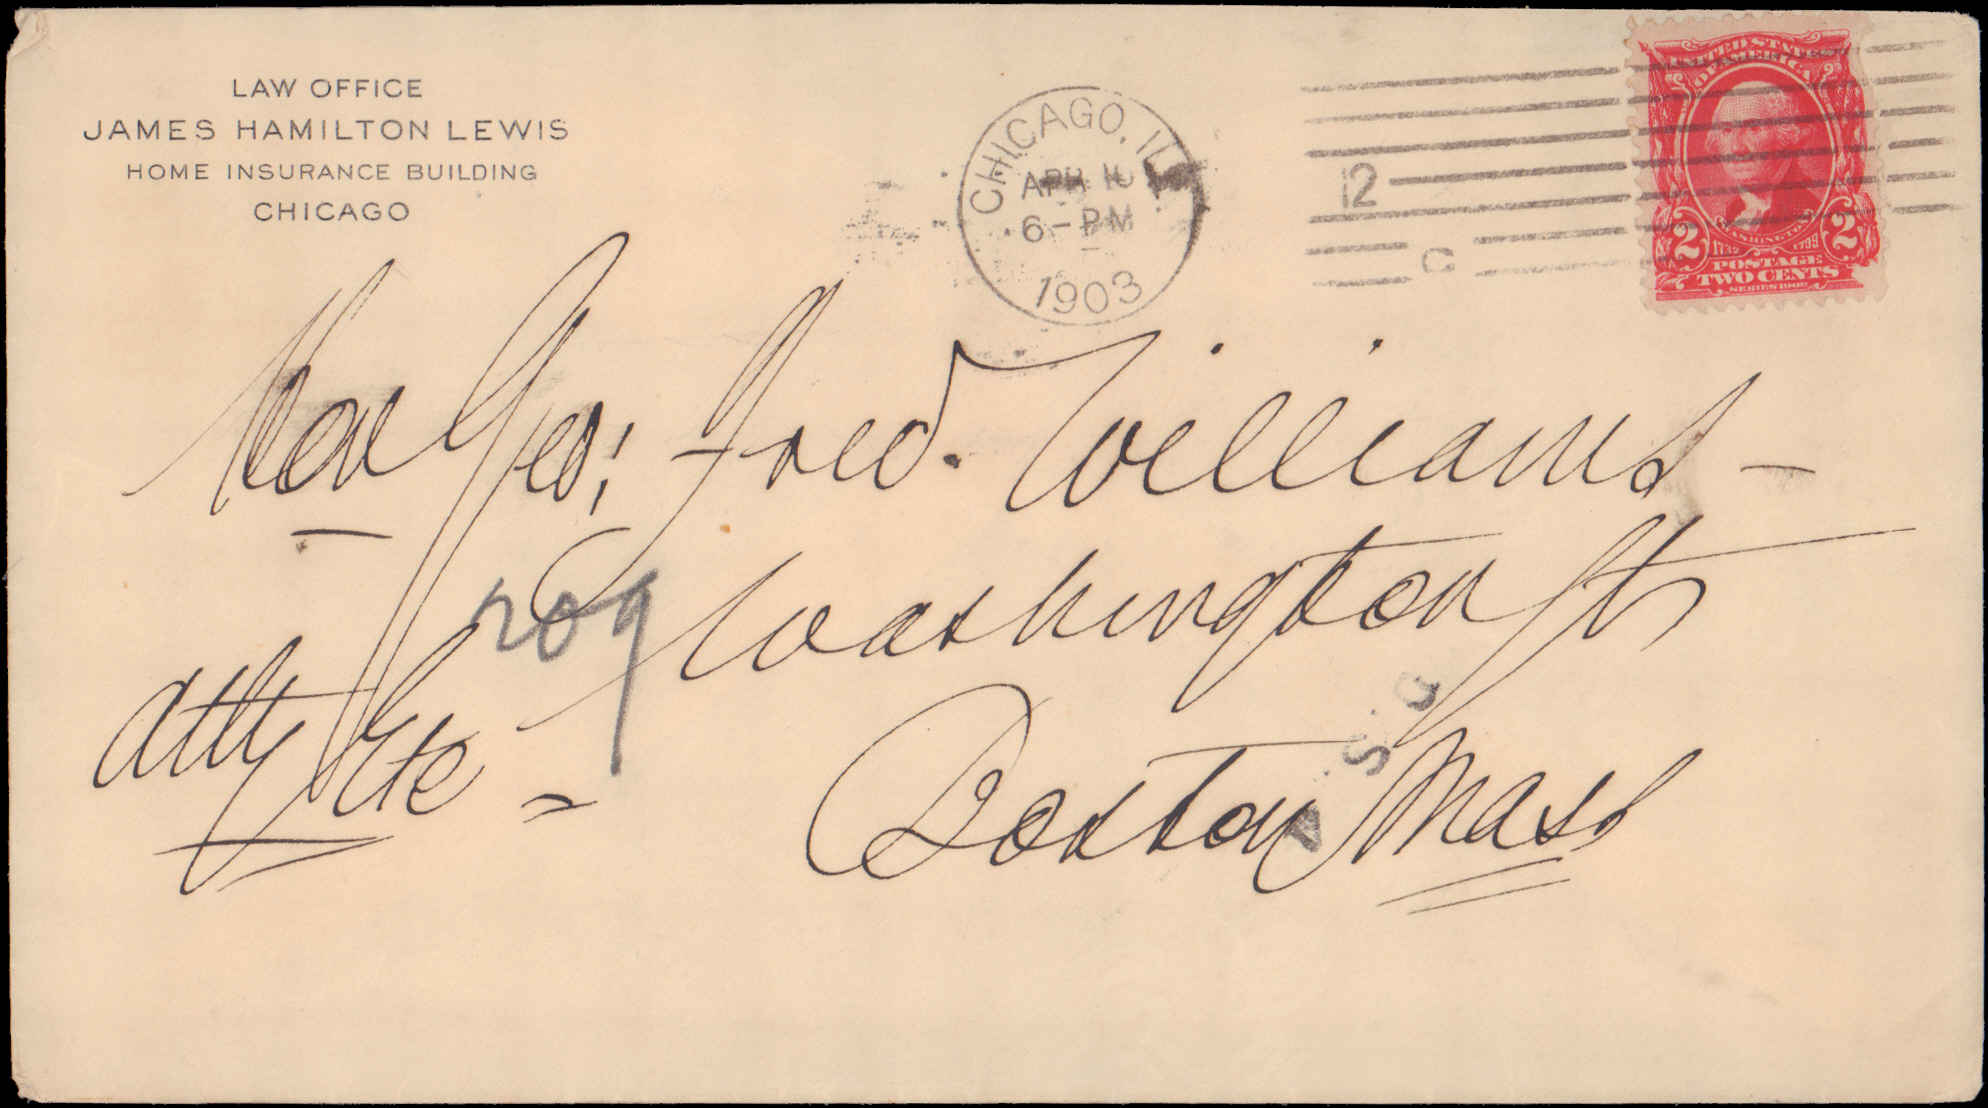 LAW OFFICE
JAMES HAMILTON LEWIS
HOME INSURANCE BUILDING
CHICAGO
CHICAGO, ILL
APR 10
6-PM
1903
12
C
UNITED STATES
OF AMERICA
2 2
WASHINGTON
1732 1799
POSTAGE
TWO CENTS
SERIES 1902
Hon Geo: Fred. Williams -
209 Washington St
atty Etc
Boston Mass